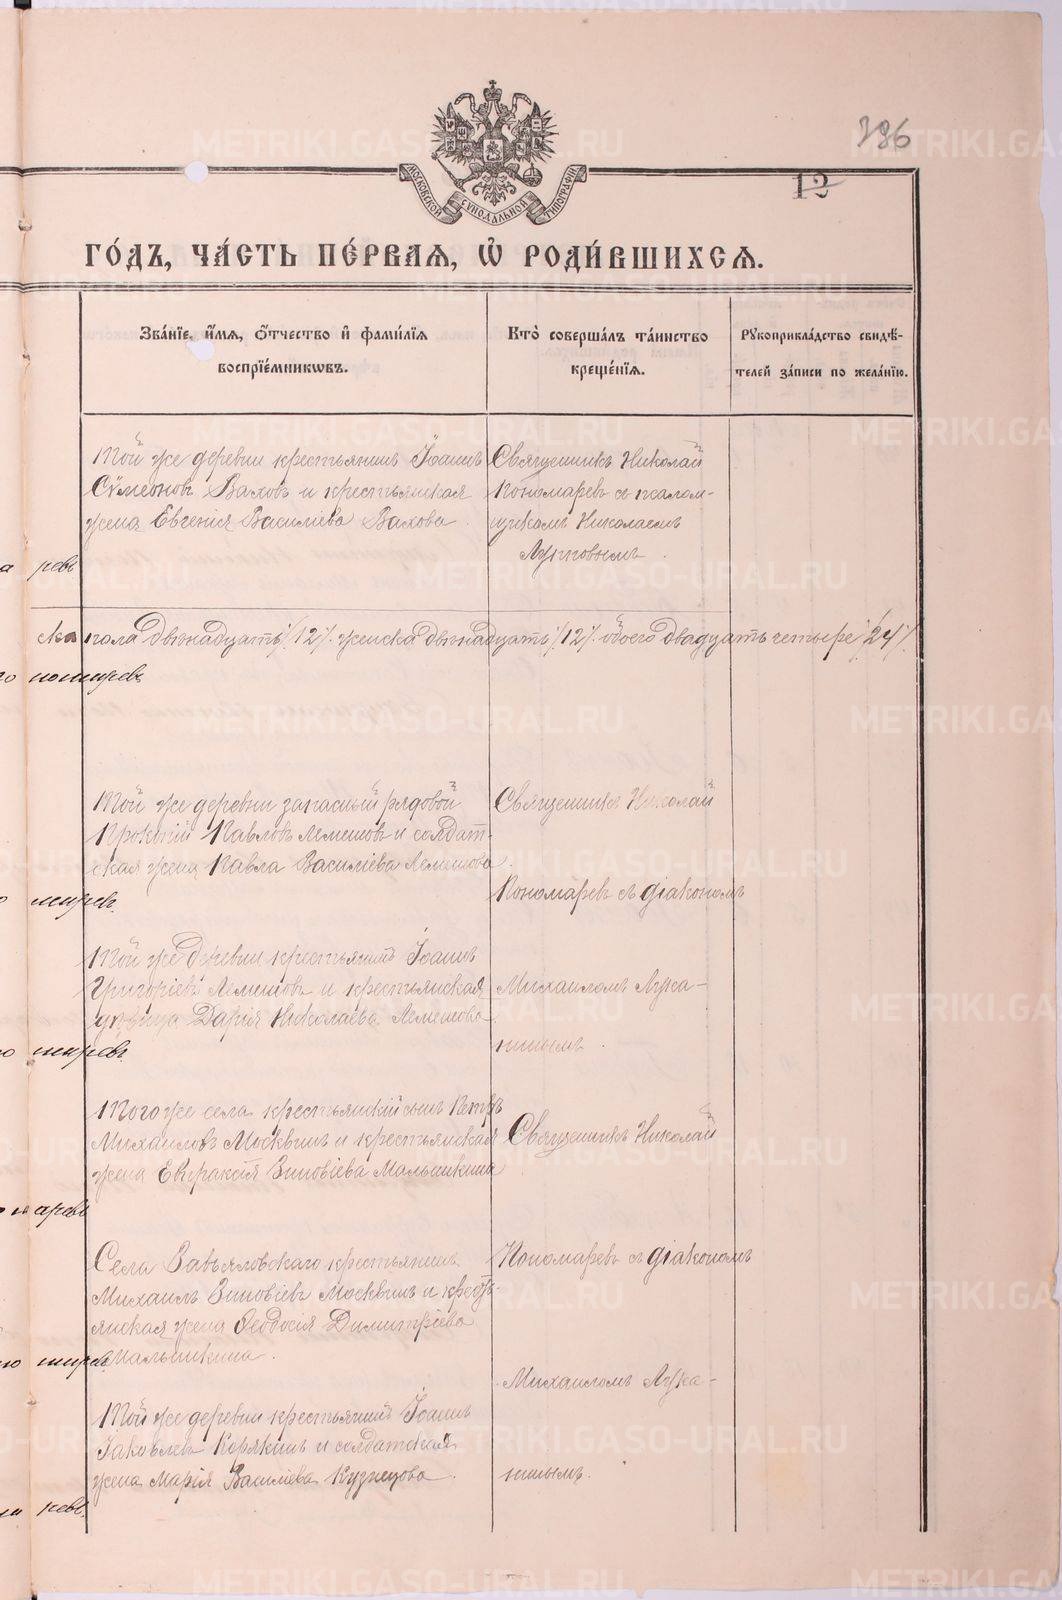 396
12
МОСКОВСКОЙ СУНОДАЛЬНОЙ ТИПОГРАФІИ
ГО́ДЪ, ЧА́СТЬ ПЕ́РВАЯ, Ѽ РОДИ́ВШИХСЯ.
Зва́нїе, и҆́мя, ѻ҆́тчество и҆ фами́лїя
воспрїе́мникѡвъ.
Кто̀ соверша́лъ та́инство
креще́нїя.
Рукоприкла́дство свидѣ́-
телей за́писи по жела́нїю.
Той же деревни крестьянинъ Іоаннъ
Сѵмеоновъ Ваховъ и крестьянская
жена Евгенія Василіева Вахова.
Священникъ Николай
Пономаревъ съ псалом-
щикомъ Николаемъ
Лупповымъ.
ревъ
ска пола двѣнадцать /12/. женска двѣнадцать /12/. обоего двадцать четыре /24/.
Той же деревни запасный рядовой
Прокопій Павловъ Лемешовъ и солдат-
ская жена Павла Василіева Лемешова.
Священникъ Николай
Пономаревъ съ діакономъ
Той же деревни крестьянинъ Іоаннъ
Григоріевъ Лемешовъ и крестьянская
дѣвица Дарія Николаева Лемешова
Михаиломъ Лука-
нинымъ.
Того же села крестьянскій сынъ Петръ
Михаиловъ Москвинъ и крестьянская
жена Евпраксія Зиновіева Малышкина
Священникъ Николай
Села Завьяловскаго крестьянинъ
Михаилъ Зиновіевъ Москвинъ и кресть-
янская жена Ѳеодосія Димитріева
Малышкина.
Пономаревъ съ діакономъ
Михаиломъ Лука-
Той же деревни крестьянинъ Іоаннъ
Іаковлевъ Корякинъ и солдатская
жена Марія Василіева Кузнецова.
нинымъ.
ревъ.
METRIKI.GASO-URAL.RU